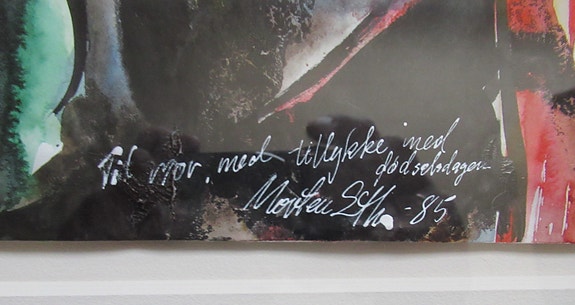 Til mor, med tillykke med
fødselsdagen
Morten -85